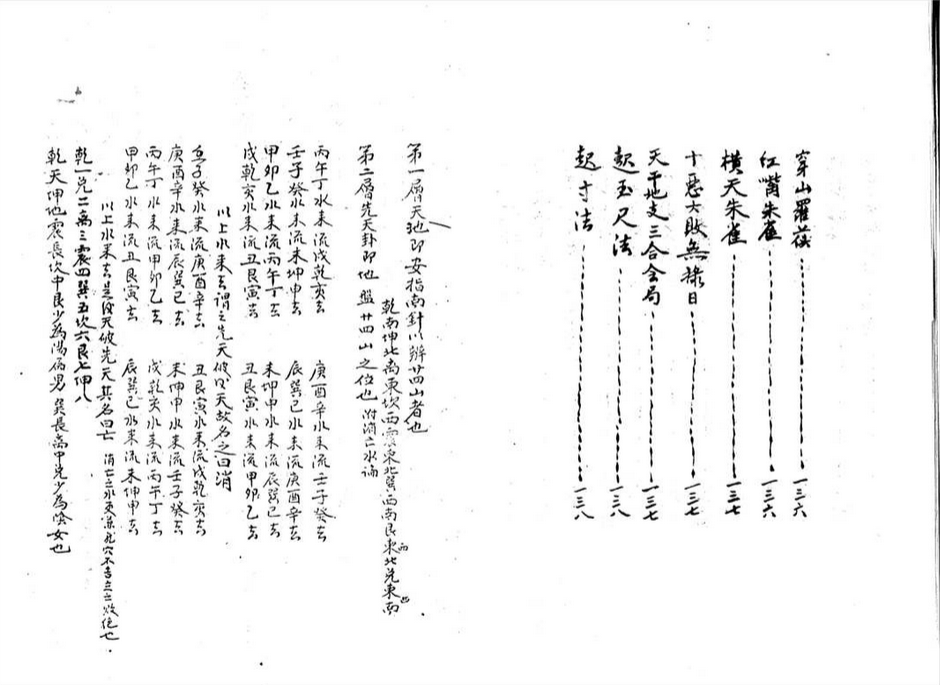 穿山羅猴 一三六
紅嘴朱雀 一三六
橫天朱雀 一三七
十惡大敗無祿日 一三七
天干地支三合会局 一三七
起玉尺法 一三八
起寸法 一三八
第一層天池即安指南針以辨廿四山者也
第二層先天卦即地盤廿四山之位也 附消亡水論
乾南坤北离東坎西震東北巽西南艮西北兌東南
丙午丁水来流戌乾亥去 庚酉辛水来流壬子癸去
壬子癸水来流未坤申去 辰巽巳水来流庚酉辛去
甲卯乙水来流丙午丁去 未坤申水来流辰巽巳去
戌乾亥水来流丑艮寅去 丑艮寅水来流甲卯乙去
以上水来去謂之先天破后天故名之曰消
壬子癸水来流庚酉辛去 丑艮寅水来流戌乾亥去
庚酉辛水来流辰巽巳去 未坤申水来流壬子癸去
丙午丁水来流甲卯乙去 戌乾亥水来流丙午丁去
甲卯乙水来流丑艮寅去 辰巽巳水来流未坤申去
以上水来去是后天破先天其名曰亡 消亡之水更兼坐穴不吉立主敗絕也
乾一兌二离三震四巽五坎六艮七坤八
乾天坤地震長坎中艮少為陽為男 巽長离中兌少為陰女也